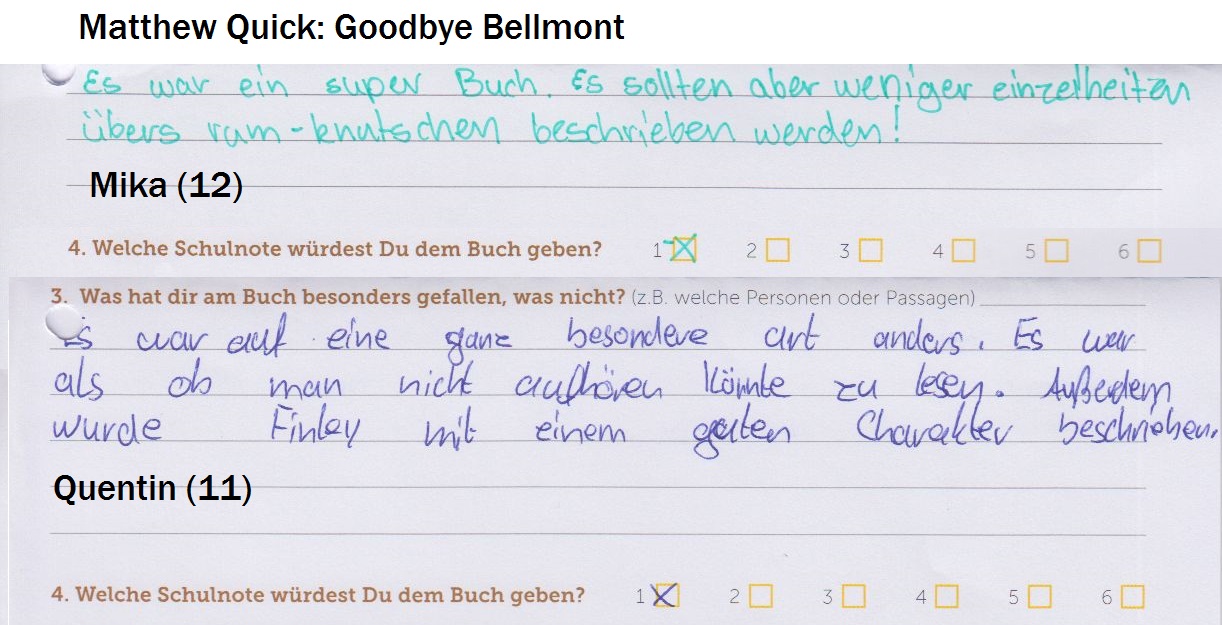 Matthew Quick: Goodbye Bellmont
Es war ein super Buch. Es sollten aber weniger einzelheiten
übers rum-knutschen beschrieben werden!
Mika (12)
4. Welche Schulnote würdest Du dem Buch geben? 1 2 3 4 5 6
3. Was hat dir am Buch besonders gefallen, was nicht? (z.B. welche Personen oder Passagen)
Es war auf eine ganz besondere art anders. Es war
als ob man nicht aufhören könnte zu lesen. Außerdem
wurde Finley mit einem guten Charakter beschrieben.
Quentin (11)
4. Welche Schulnote würdest Du dem Buch geben? 1 2 3 4 5 6